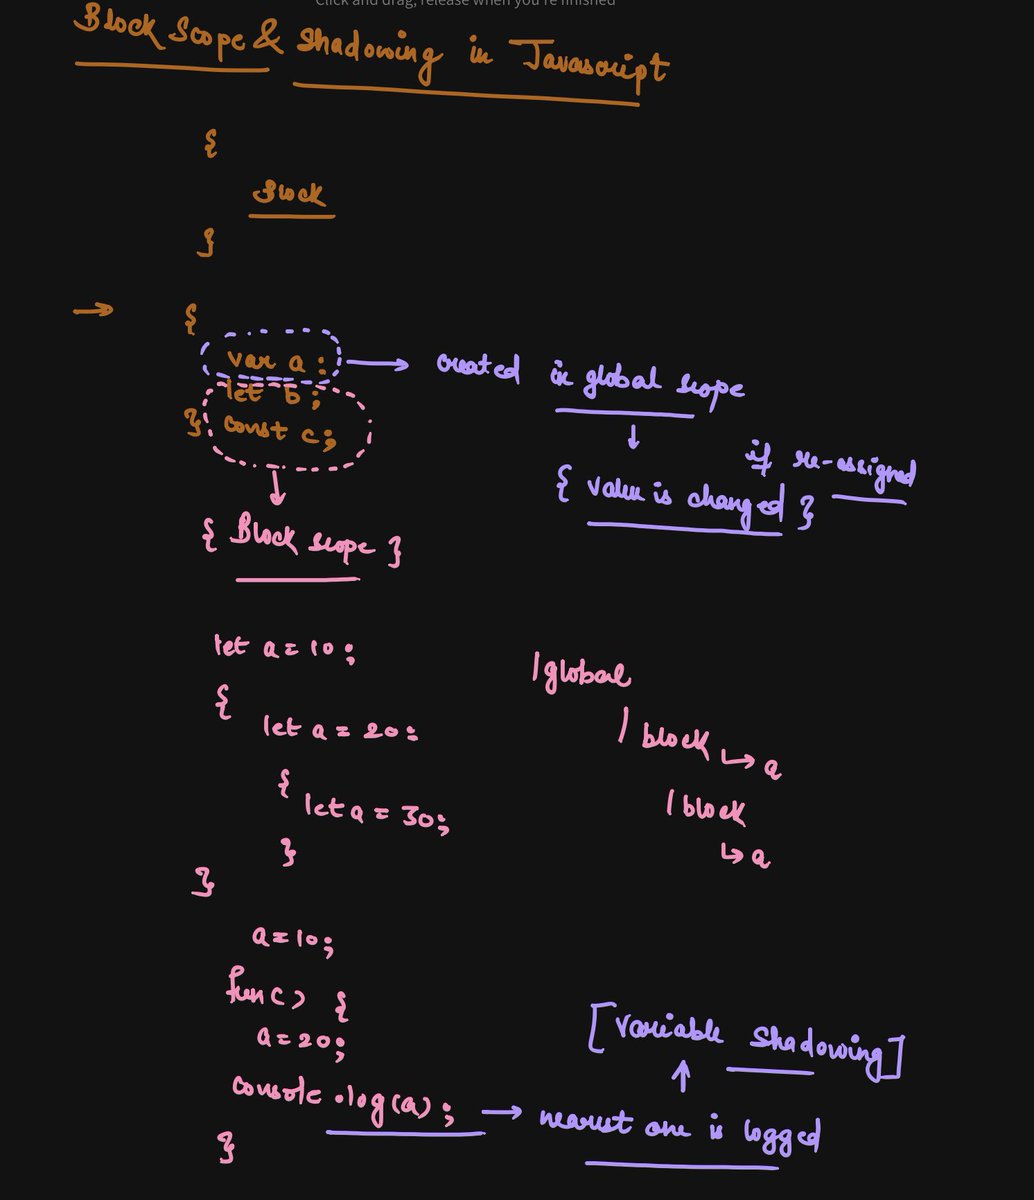 Click and drag, release when you're finished
Block Scope & Shadowing in Javascript
{
Block
}
→ {
var a; → created in global scope
let b;
} const c;
↓
if re-assigned
{ value is changed }
↓
{ Block scope }
let a = 10;
{
let a = 20;
{
let a = 30;
}
}
| global
| block ↳ a
| block
↳ a
a = 10;
func() {
a = 20;
console.log(a); → nearest one is logged
}
↑
[Variable Shadowing]